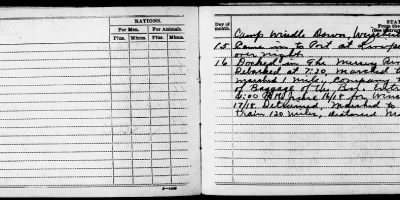 RATIONS.
For Men. For Animals.
Plus. Minus. Plus. Minus.
Day of
month.
STA
From the
Camp Windle Down,
15 Came in to Port at Liverpo
over night.
16 Docked in The Mersey Riv
Debarked at 7:30, Marched t
marched 1 mile, Company
of Baggage of the Bn.
6:00 P.M. June 16/18 for Winc
17/18. Detrained, Marched to
train 120 miles, distance Ma